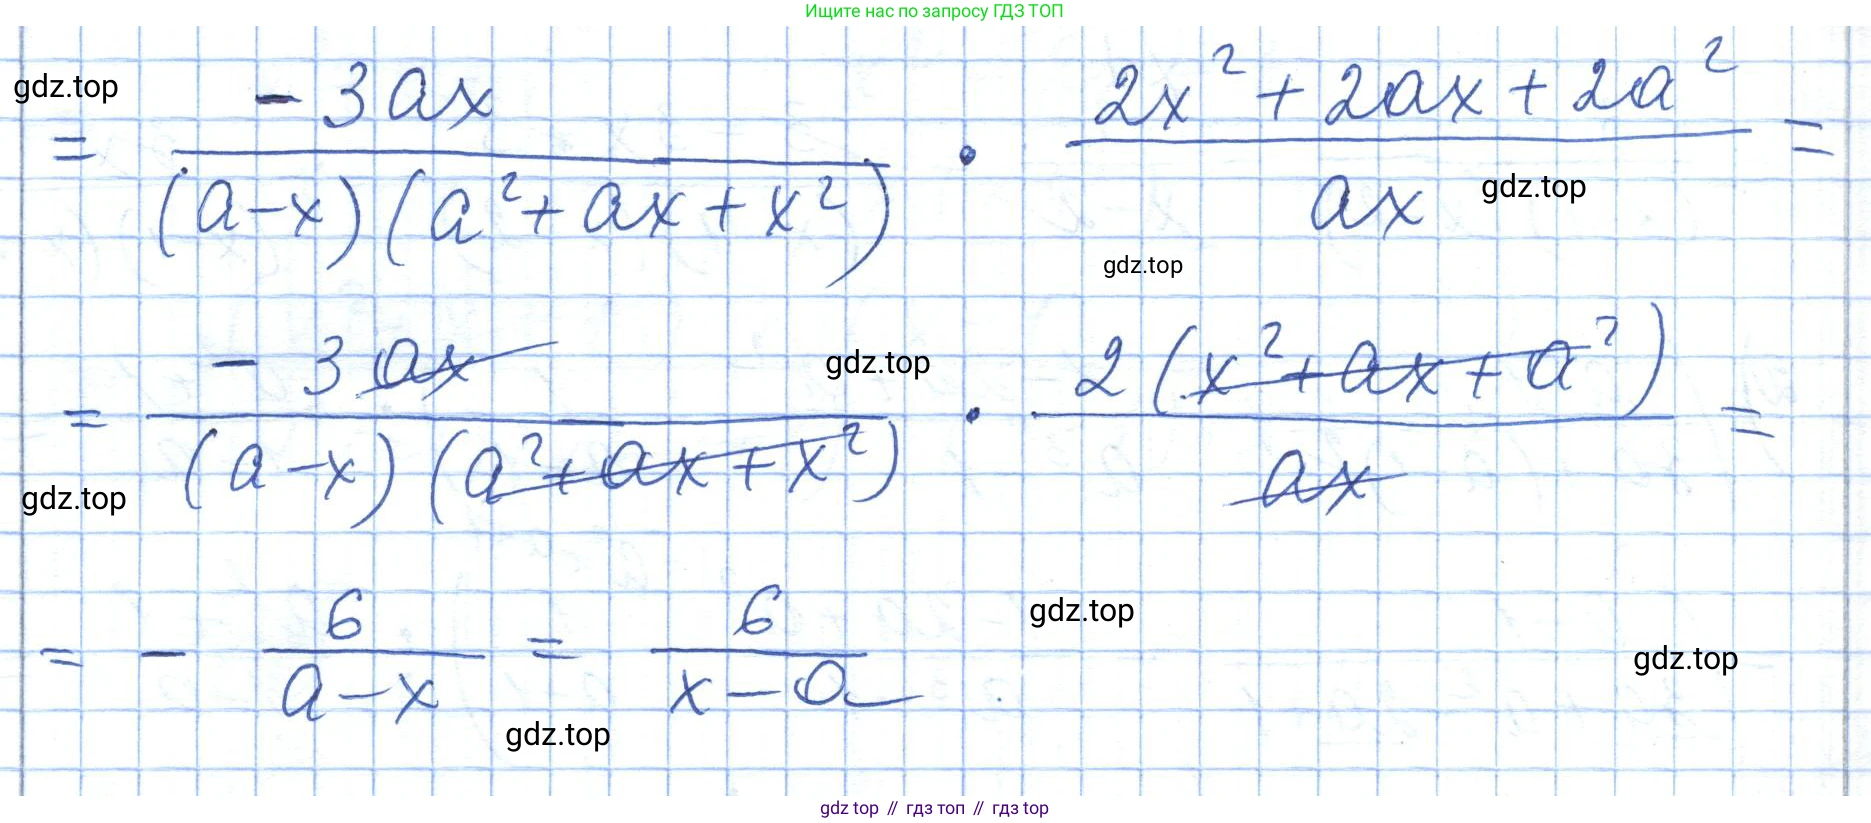 Ищите нас по запросу ГДЗ ТОП
gdz.top
= -3ax / (a-x)(a²+ax+x²) · 2x²+2ax+2a² / ax =
gdz.top
gdz.top
= -3ax / (a-x)(a²+ax+x²) · 2(x²+ax+a²) / ax =
gdz.top
gdz.top
= - 6 / a-x = 6 / x-a
gdz.top
gdz.top
gdz.top
gdz top // гдз топ // gdz top